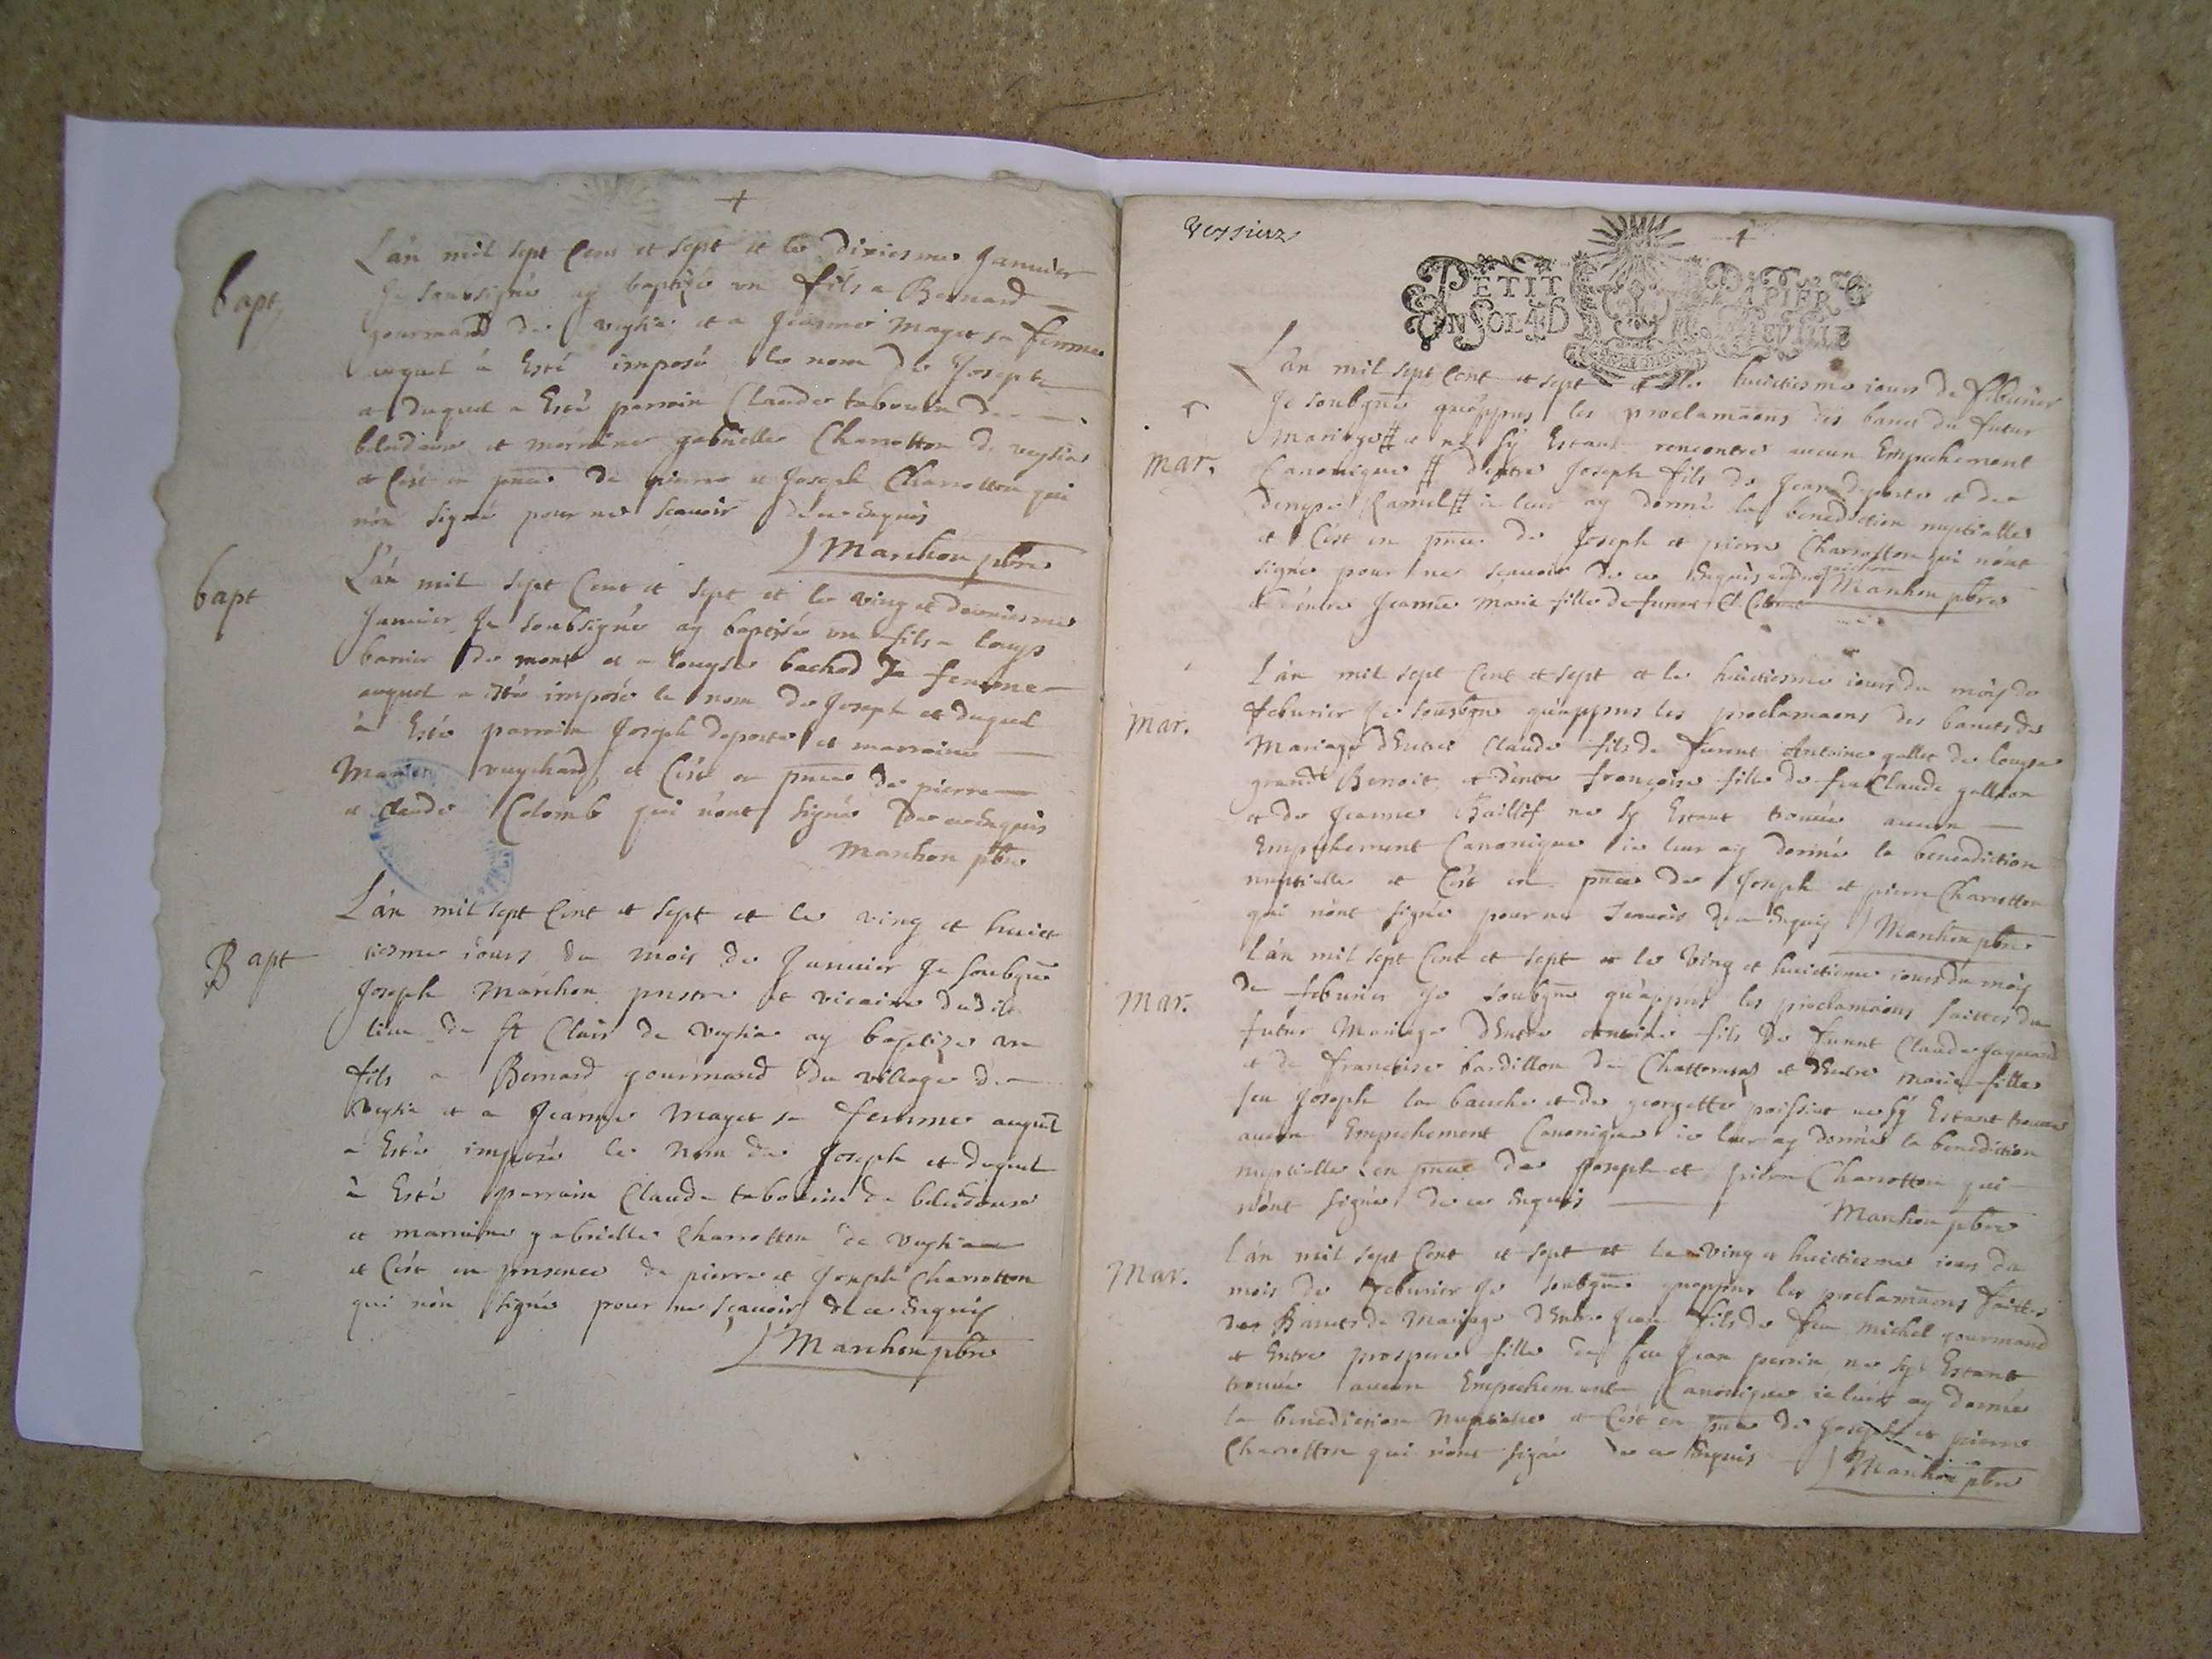 L'án mil sept Cent et sept et le dixiesme Januier
bapt
Je soubsigné ay baptizé un fils a Bernard
gourmand de Veyzia et a Jeanne Mayet sa femme
auquel à Esté imposé le nom de Joseph
et duquel a Esté parrain Claude tabourin de
et marraine gabrielle Charrotton de Veyzia
et C'ést en pnce de pierre et Joseph Charrotton qui
n'ón signé pour ne sçauoir de ce Enquis
Marchon pbre
bapt
L'án mil sept Cent et sept et le ving et
Januier Je soubsigné ay baptisé un fils a louys
barnier de mons et a louyse bachod sa femme
auquel a Esté imposé le nom de Joseph et duquel
à Esté parrain Joseph deporte et marraine
Marie vuychard et C'ést en pnce de pierre
et Claude Colomb qui n'ont signé De ce Enquis
Marchon pbre
L'án mil sept Cent et sept et le ving et huict
Bapt
iesme iours du mois de Januier Je soubgné
Joseph Márchon prestre et vicaire dudit
lieu de St Clair de Veyzia ay baptizé un
fils a Bernard gourmand du village de
Veyzia et a Jeanne Mayet sa femme auquel
a Esté imposé le Nom de Joseph et duquel
à Esté parrain Claude tabourin de
et marraine gabrielle Charrotton de Veyzia
et C'ést en presence de pierre et Joseph Charrotton
qui n'ón signé pour ne sçauoir de ce Enquis
Marchon pbre
PETIT PAPIER
UN SOL 4 D
L'án mil sept Cent et sept et le huictiesme iours de feburier
Je soubgné qu'appres les proclamaōns des bancs du futur
mar.
Mariage # et ne sy Estant rencontré aucun Empechement
Canonique # d'entre Joseph fils de Jean deporte et de
denyse Ramel # ie leur ay donné la benediction nuptialle
et C'ést en pnce de Joseph et pierre Charrotton qui n'ónt
signé pour ne scauoir de ce Enquis
Marchon pbre
# d'entre Jeanne Marie fille de
L'án mil sept Cent et sept et le huictiesme iours du mois de
mar.
feburier Je soubgné qu'appres les proclamaons des bancts de
Mariage d'Entre Claude fils de funnt Antoine gallet de
grand Benoit et d'entre françoise fille de feu Claude
et de Jeanne Baillif ne sy Estant trouué aucun
Empechement Canonique ie leur ay donné la benediction
nuptialle et C'ést en pnce de Joseph et pierre Charrotton
qui n'ónt signé pour ne scauoir de ce Enquis Marchon pbre
L'án mil sept Cent et sept et le Ving et huictieme iours du mois
mar.
de feburier Je soubgné qu'appres les proclamaōns faittes du
futur Mariage d'Entre Antoine fils de funnt Claude Jaquand
et de françoise bardillon de et d'Entre Marie fille
feu Joseph la bauche et de georgette poissiat ne sy Estant trouué
aucun Empechement Canonique ie leur ay donné la benediction
nuptialle en pnce de Joseph et pierre Charrotton qui
n'ónt signé de ce Enquis
Marchon pbre
L'án mil sept Cent et sept et le ving et huictiesme iours du
Mar.
mois de feburier Je soubgné qu'appres les proclamaōns faittes
des Bancts de Mariage d'Entre Jean fils de feu michel gourmand
et Entre prospere fille de feu Jean perrin ne sy Estant
trouué aucun Empechement Canonique ie leurs ay donné
la benediction Nuptialle et C'ést en pnce de Joseph et pierre
Charrotton qui n'ónt signé de ce Enquis Marchon pbre